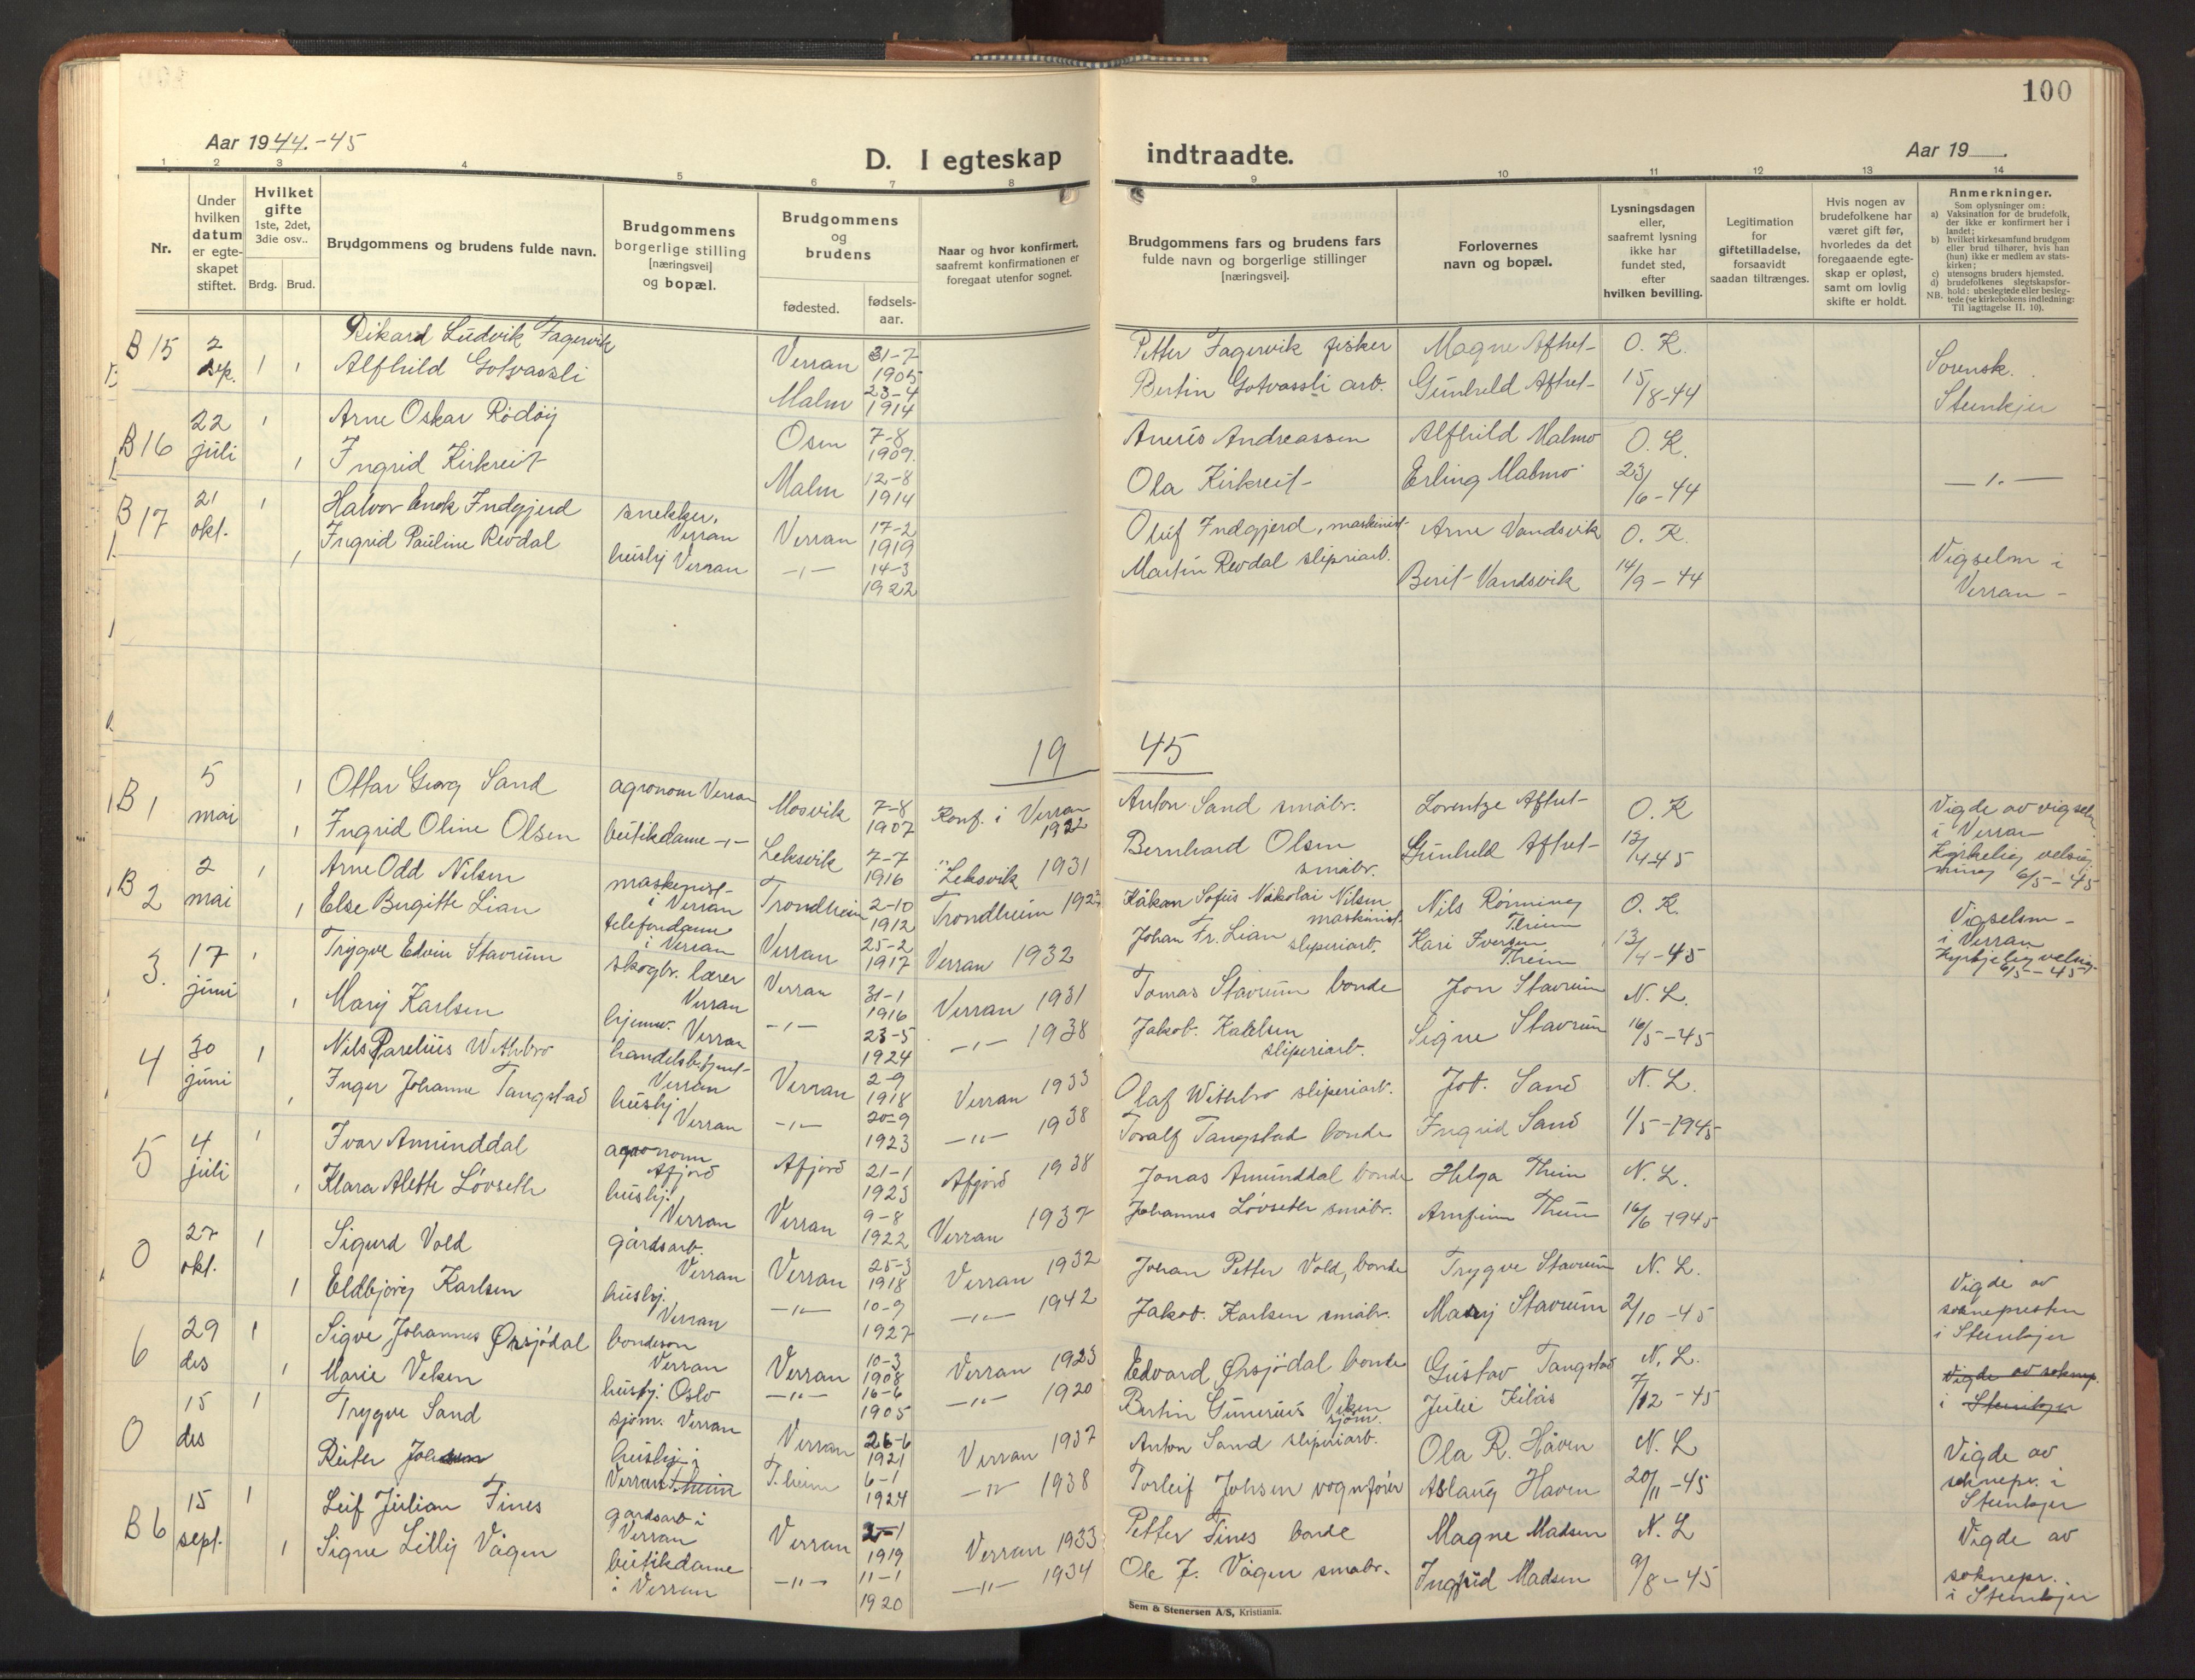 100
Aar 1944.-45
D. I egteskap
indtraadte.
Aar 19
1 2 3 4 5 6 7 8 9 10 11 12 13 14
Nr.
Under hvilken datum er egteskapet stiftet.
Hvilket gifte 1ste, 2det, 3die osv..
Brdg. Brud.
Brudgommens og brudens fulde navn.
Brudgommens borgerlige stilling [næringsvei] og bopæl.
Brudgommens og brudens
fødested.
fødsels-aar.
Naar og hvor konfirmert, saafremt konfirmationen er foregaat utenfor sognet.
Brudgommens fars og brudens fars fulde navn og borgerlige stillinger [næringsvei].
Forlovernes navn og bopæl.
Lysningsdagen eller, saafremt lysning ikke har fundet sted, efter hvilken bevilling.
Legitimation for giftetilladelse, forsaavidt saadan tiltrænges.
Hvis nogen av brudefolkene har været gift før, hvorledes da det foregaaende egteskap er opløst, samt om lovlig skifte er holdt.
Anmerkninger.
Som oplysninger om:
a) Vaksination for de brudefolk, der ikke er konfirmert her i landet;
b) hvilket kirkesamfund brudgom eller brud tilhører, hvis han (hun) ikke er medlem av statskirken;
c) utensogns bruders hjemsted.
d) brudefolkenes slegtskapsforhold: ubeslegtede eller beslegtede (se kirkebokens indledning:
NB. Til iagttagelse II. 10).
B 15 2 sep. 1 Rikard Ludvik Fagervik Verran 31-7 1905 Petter Fagervik fisker Magne Aftret O. K. Sorensk.
1 Alfhild Gotvassli Malm 23-4 1914 Bertin Gotvassli arb. Gunhild Aftret 15/8-44 Steinkjer
B 16 22 juli 1 Arne Oskar Rødøy Osen 7-8 1909. Andreassen Alfhild Malmo O. K.
1 Ingrid Kirkreit Malm 12-8 1914 Ola Kirkreit Erling Malmo 23/6-44 -"-
B 17 21 okt. 1 Halvor Enok Indgjerd snekker, Verran Verran 17-2 1919 Oluf Indgjerd, maskinist Arne Vandsvik O. K. Vigselm i
1 Ingrid Pauline Revdal husbj Verran -"- 14-3 1922 Martin Revdal slipriarb. Berit Vandsvik 14/9-44 Verran -
19 45
B 1 5 mai 1 Ottar Georg Sand agronom Verran Mosvik 7-8 1907 Konf. i Verran 1922 Anton Sand småbr. Lorentze Aftret O. K Vigde av vigselm i Verran
1 Ingrid Oline Olsen butikdame -"- Leksvik 7-7 1916 " Leksvik 1931 Bernhard Olsen småbr. Gunhild Aftret 13/4-45 Kirkelig velsigning 6/5-45
B 2 2 mai 1 Arne Odd Nilsen maskinist i Verran Trondheim 2-10 1912 Trondheim 1927 Håkan Sofus Nikolai Nilsen maskinist Nils Rønning Theim O. K. Vigselm - i Verran
1 Else Birgitte Lian telefondame i Verran Verran 25-2 1917 Verran 1932 Johan Fr. Lian sliperiarb. Kari Iversen Theim 13/4-45 Kyrkjelig velsig. 6/5-45
3. 17 juni 1 Trygve Edvin Stavrum skogbr. lærer Verran Verran 31-1 1916 Verran 1931 Tomas Stavrum bonde Jon Stavrum N. L.
1 Mary Karlsen hjemmev. Verran -"- 23-5 1924 -"- 1938 Jakob. Karlsen sliperiarb. Signe Stavrum 16/5-45
4 30 juni 1 Nils Parelius Withbro handelsbetjent Verran Verran 2-9 1918 Verran 1933 Olaf Withbro sliperiarb. Job. Sand N. L.
1 Inger Johanne Tangstad husbj Verran -"- 20-9 1923 -"- 1938 Toralf Tangstad bonde Ingrid Sand 1/5-1945
5 4 juli 1 Ivar Amunddal agronom Afjord Afjord 21-1 1923 Afjord 1938 Jonas Amunddal bonde Helga Thein N. L.
1 Klara Alette Løvseth husbj. Verran Verran 9-8 1922 Verran 1937 Johannes Løvseth småbr. Arnfinn Thein 16/6 1945
0 27 okt. 1 Sigurd Vold gårdsarb. Verran Verran 25-3 1918 Verran 1932 Johan Petter Vold, bonde Trygve Stavrum N. L. Vigde av
1 Eldbjørg Karlsen husbj. Verran -"- 10-9 1927 -"- 1942 Jakob. Karlsen småbr. Mary Stavrum 2/10-45 soknepresten i Steinkjer
6 29 des 1 Sigve Johannes Ørsjødal bondeson Verran Verran 10-3 1908 Verran 1923 Edvard Ørsjødal bonde Gustav Tangstad N. L. Vigde av soknep.
1 Marie Veken husbj. Oslo -"- 16-6 1905 -"- 1920 Bertin Gunerius Viken sjøm. Julie Kilås 7/12-45 i Steinkjer
0 15 des 1 Trygve Sand sjøm. Verran Verran 26-6 1921 Verran 1937 Anton Sand sliperiarb. Ola R. Håven N. L Vigde av
Johnsen husbj i Verran Theim T.heim 6-1 1924 -"- 1938 Torleif Johsen vognfører Aslaug Haven 20/11-45 soknepr. i Steinkjer
B 6 15 sept. 1 Leif Julian Fines gardsarb i Verran Verran 2-1 1919 Verran 1933 Petter Fines bonde Magne Madsen N. L Vigde av
1 Signe Lilly Vågen butikdame i Verran -"- 11-1 1920 -"- 1934 Ole J. Vågen småbr. Ingfrid Madsen 9/8-45 soknepr. i Steinkjer
Sem & Stenersen A/S, Kristiania.